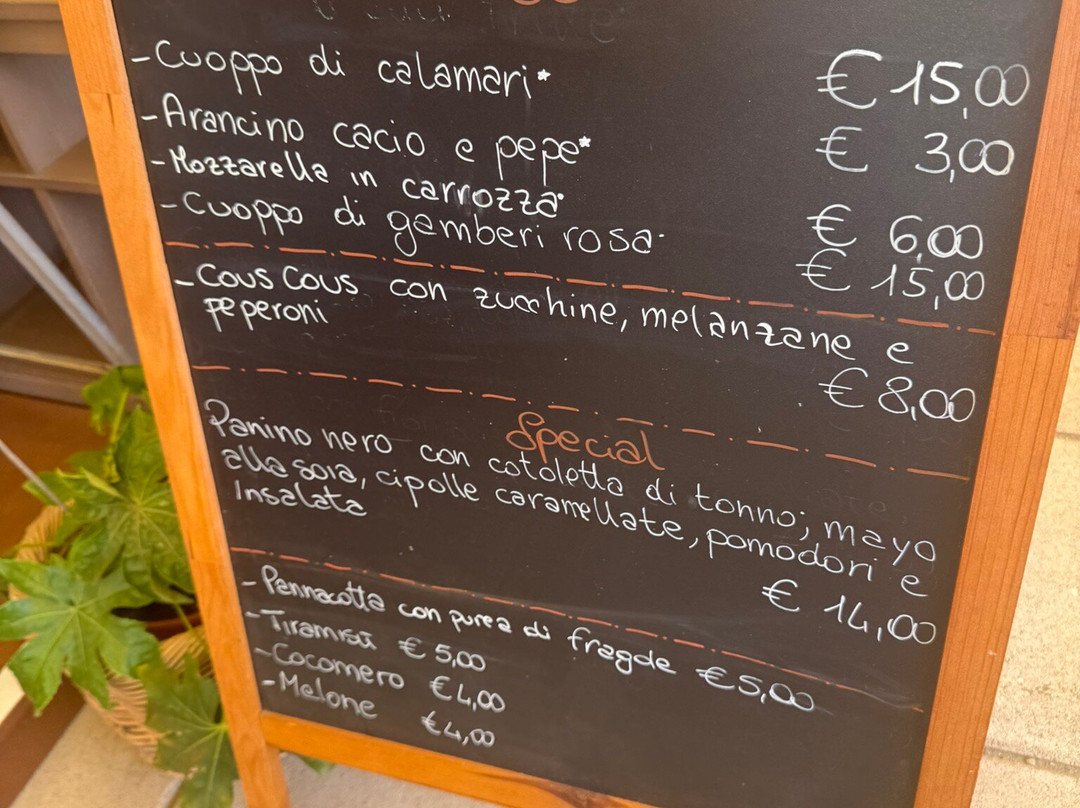 -Cuoppo di calamari* € 15,00
-Arancino cacio e pepe* € 3,00
-Mozzarella in carrozza* € 6,00
-Cuoppo di gamberi rosa* € 15,00
-Cous Cous con zucchine, melanzane e
peperoni € 8,00
Special
Panino nero con cotoletta di tonno; mayo
alla soia, cipolle caramellate, pomodori e
Insalata € 14,00
-Pannacotta con purea di fragole €5,00
-Tiramisù €5,00
-Cocomero €4,00
-Melone €4,00